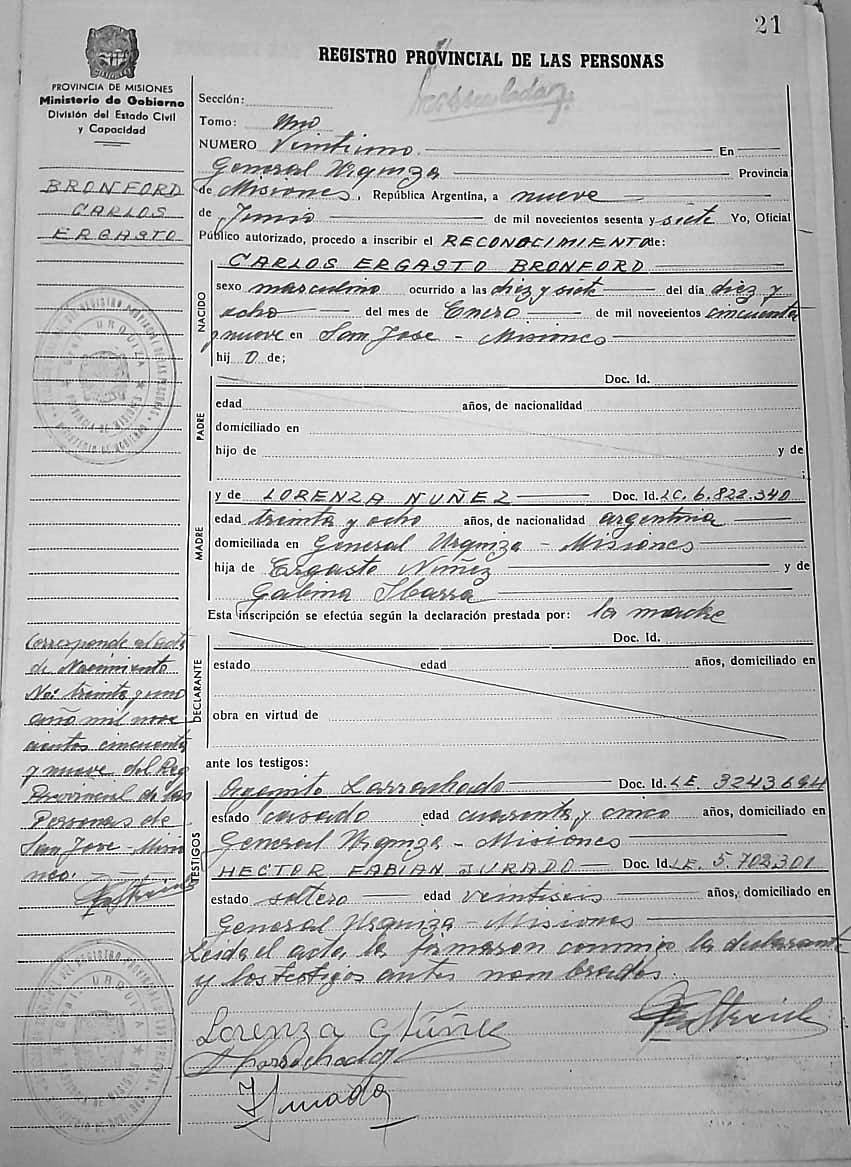 21
REGISTRO PROVINCIAL DE LAS PERSONAS
PROVINCIA DE MISIONES
Ministerio de Gobierno
División del Estado Civil
y Capacidad
BRONFORD
CARLOS
ERGASTO
Sección:
Tomo: Uno
NUMERO Veintiuno. En
General Urquiza Provincia
de Misiones, República Argentina, a nueve
de Junio de mil novecientos sesenta y siete Yo, Oficial
Público autorizado, procedo a inscribir el RECONOCIMIENTO de:
CARLOS ERGASTO BRONFORD
NACIDO
sexo masculino ocurrido a las diez y siete del día diez y
ocho del mes de Enero de mil novecientos cincuenta
y nueve en San Jose - Misiones
hij O de;
PADRE
Doc. Id.
edad años, de nacionalidad
domiciliado en
hijo de y de
;
MADRE
y de LORENZA NUÑEZ Doc. Id. LC. 6.822.340
edad treinta y ocho años, de nacionalidad argentina
domiciliada en General Urquiza - Misiones
hija de Ergasto Nuñez y de
Galema Ibarra
Esta inscripción se efectúa según la declaración prestada por: la madre
DECLARANTE
Doc. Id.
estado edad años, domiciliado en
obra en virtud de
ante los testigos:
TESTIGOS
Larrachado Doc. Id. LE. 3243694
estado casado edad cuarenta y cinco años, domiciliado en
General Urquiza - Misiones
HECTOR FABIAN JURADO Doc. Id. LE. 5.702.301
estado soltero edad veintiseis años, domiciliado en
General Urquiza - Misiones
Leida el acta, la firmaron conmigo la declarante
y los testigos antes nombrados.
Corresponde al acta
de Nacimiento
No: treinta y uno
año mil nove
cientos cincuenta
y nueve del Reg
Provincial de las
Personas de
San Jose - Misio
nes.
Lorenza Núñez
Larrachado
Jurado